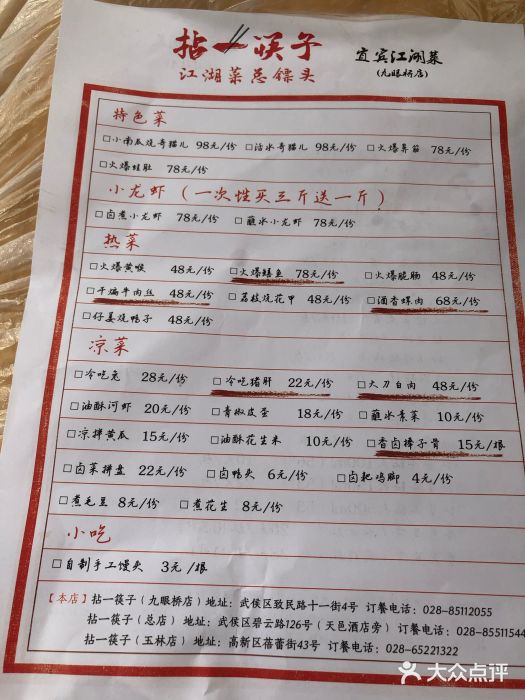 拈一筷子
江湖菜总镖头
宜宾江湖菜
(九眼桥店)
特色菜
□小南瓜烧哥猫儿 98元/份 □活水哥猫儿 98元/份 □火爆鼻筋 78元/份
□火爆蛙肚 78元/份
小龙虾（一次性买三斤送一斤）
□卤煮小龙虾 78元/份 □蘸水小龙虾 78元/份
热菜
□火爆黄喉 48元/份 □火爆鳝鱼 78元/份 □火爆脆肠 48元/份
□干煸牛肉丝 48元/份 □荔枝烧花甲 48元/份 □酒香螺肉 68元/份
□仔姜烧鸭子 48元/份
凉菜
□冷吃兔 28元/份 □冷吃猪肝 22元/份 □大刀白肉 48元/份
□油酥河虾 20元/份 □青椒皮蛋 18元/份 □蘸水素菜 10元/份
□凉拌黄瓜 15元/份 □油酥花生米 10元/份 □香卤棒子骨 15元/根
□卤菜拼盘 22元/份 □卤鸭头 6元/份 □卤耙鸡脚 4元/份
□煮毛豆 8元/份 □煮花生 8元/份
小吃
□自制手工馒头 3元/根
【本店】拈一筷子（九眼桥店）地址：武侯区致民路十一街4号 订餐电话：028-85112055
拈一筷子（总店）地址：武侯区碧云路126号（天邑酒店旁）订餐电话：028-85511544
拈一筷子（玉林店）地址：高新区蓓蕾街43号 订餐电话：028-65221322
大众点评